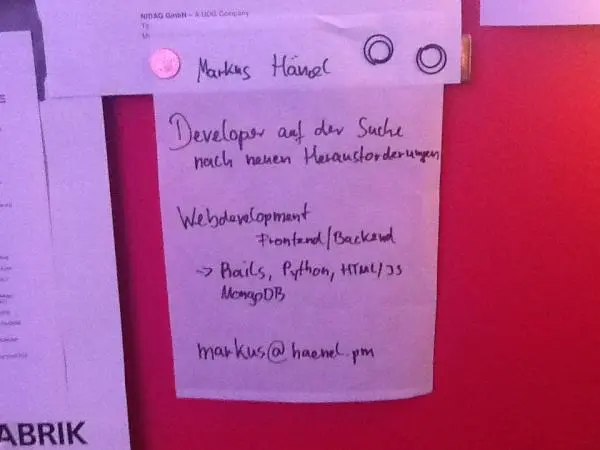 NIDAG GmbH – A UDG Company
Markus Hänel
Developer auf der Suche
nach neuen Herausforderungen
Webdevelopment
Frontend/Backend
-> Rails, Python, HTML/JS
MongoDB
markus@haenel.pm
ABRIK